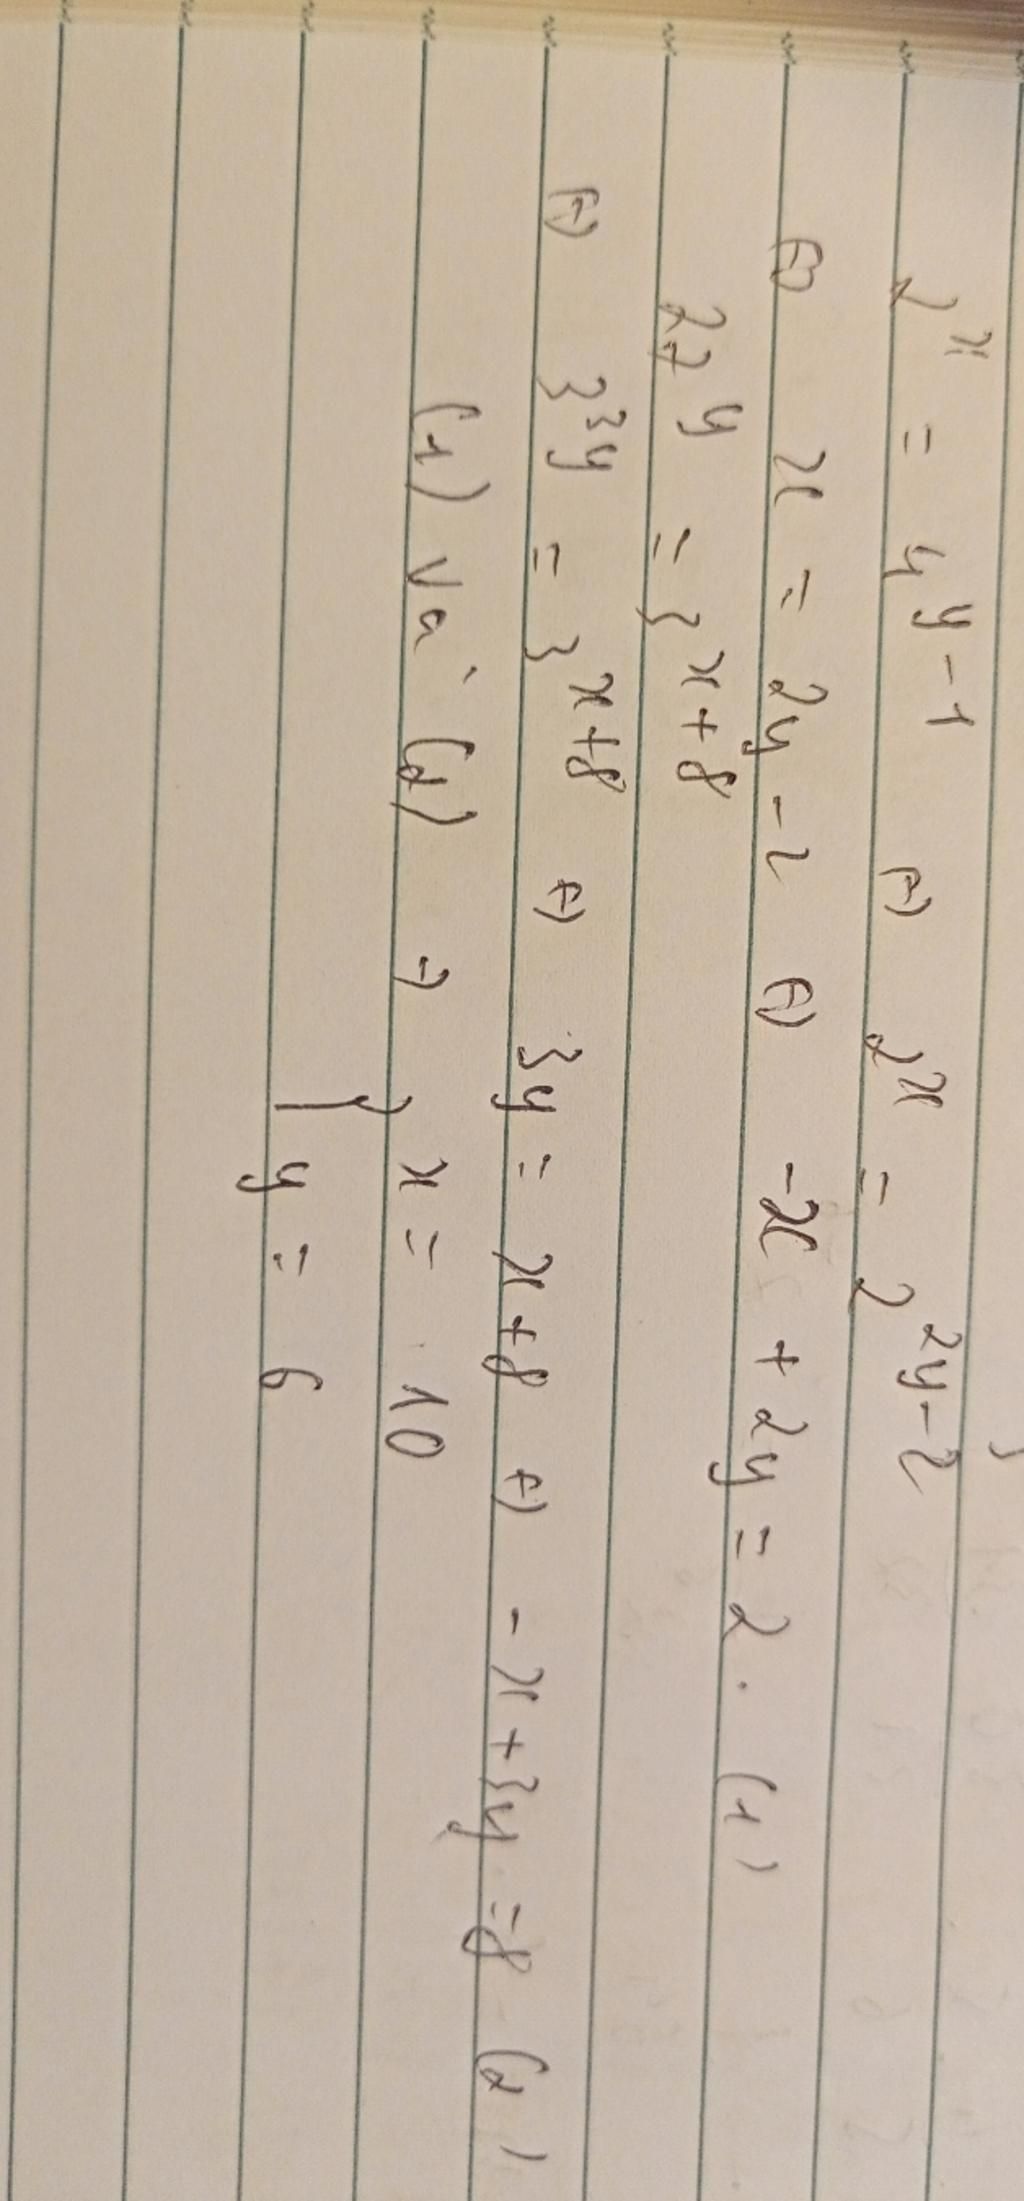 2^x = 4^{y-1} (=) 2^x = 2^{2y-2}
(=) x = 2y - 2 (=) -x + 2y = 2. (1)
27^y = 3^{x+8}
(=) 3^{3y} = 3^{x+8} (=) 3y = x+8 (=) -x+3y = 8 (2)
(1) và (2) =) { x = 10
y = 6